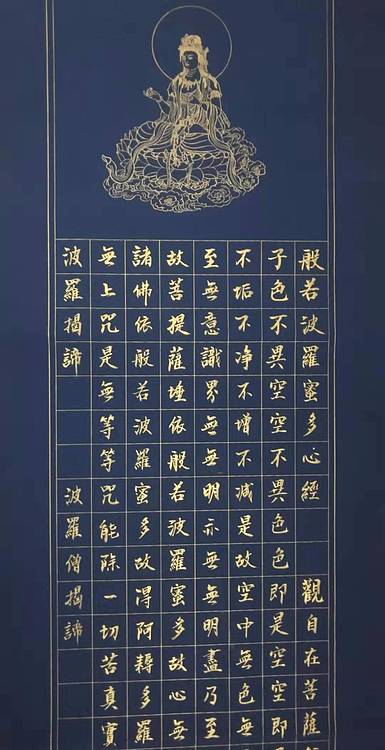 般若波羅蜜多心經 觀自在菩薩
子色不異空空不異色色即是空空即
不垢不净不增不減是故空中無色無
至無意識界無無明亦無無明盡乃至
故菩提薩埵依般若波羅蜜多故心無
諸佛依般若波羅蜜多故得阿耨多羅
無上咒是無等等咒能除一切苦真實
波羅揭諦 波羅僧揭諦